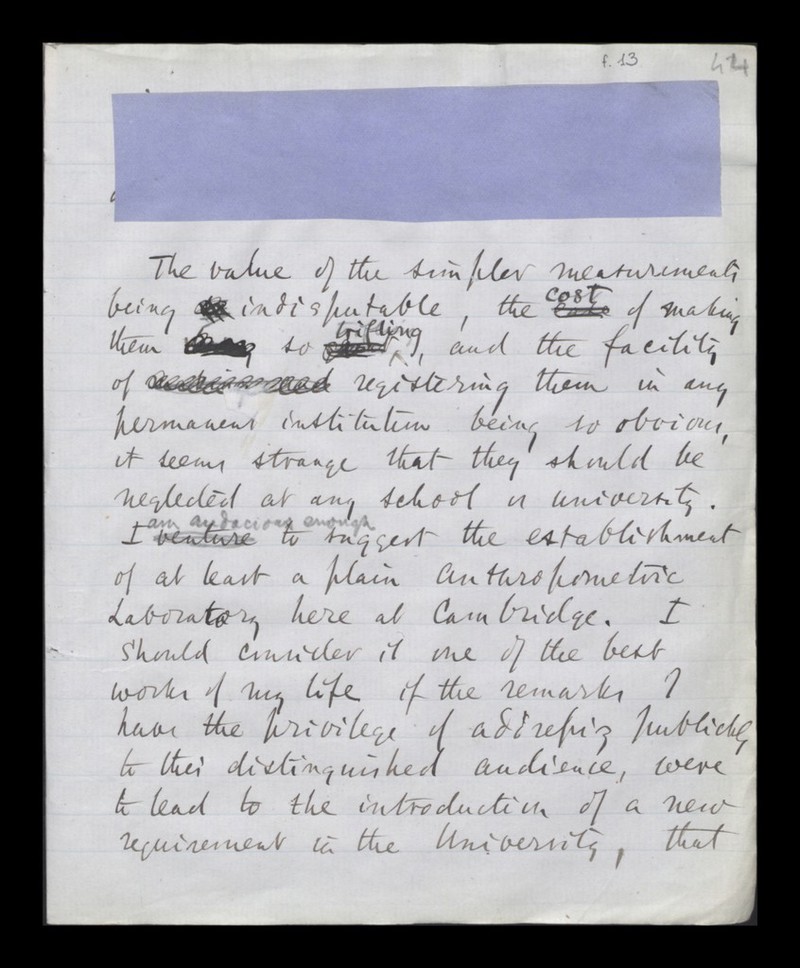 f. 13
The value of the simpler measurements
being indisputable, the cost of making
them so trifling, and the facility
of registering them in any
permanent institution being so obvious,
it seems strange that they should be
neglected at any school or university.
I am audacious enough to suggest the establishment
of at least a plain Anthropometric
Laboratory here at Cambridge. I
should consider it one of the best
works of my life if the remarks I
have the privilege of addressing publickly
to this distinguished audience, were
to lead to the introduction of a new
requirement in the University, that